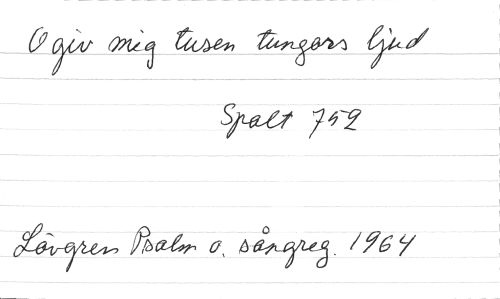 O giv mig tusen tungors ljud
Spalt 752
Lövgren Psalm o. sångreg. 1964